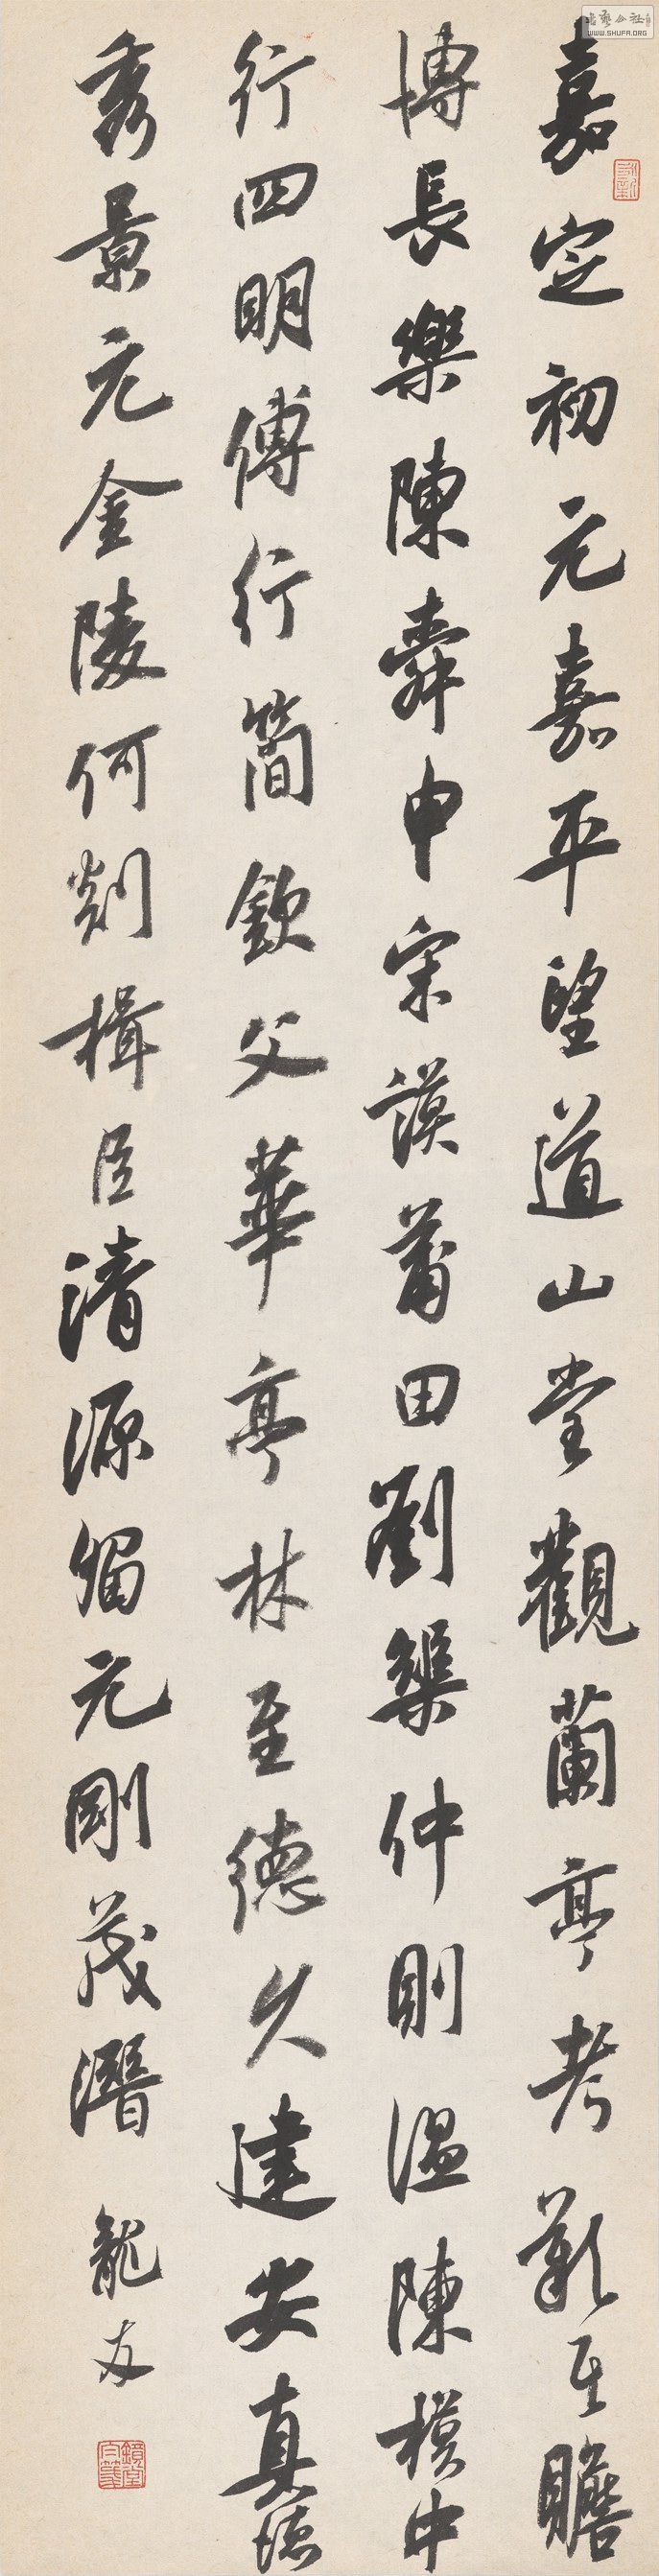 嘉定初元嘉平望道山堂觀蘭亭考歎其贍
博長樂陳舜申宋謨莆田劉榘仲則溫陳模中
行四明傅行簡欽父華亭林至德久建安真德
秀景元金陵何剡楫臣清源留元剛茂潛
龍友
WWW.SHUFA.ORG